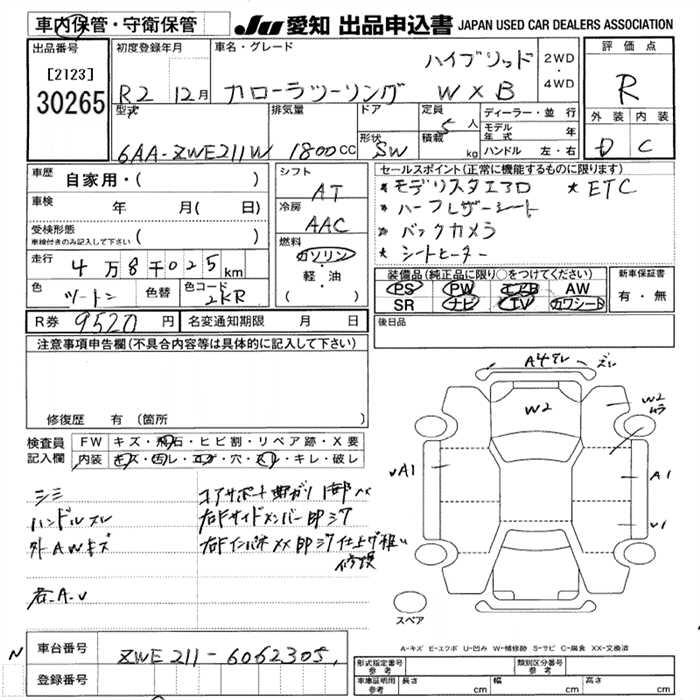 車内保管・守衛保管
JU 愛知 出品申込書 JAPAN USED CAR DEALERS ASSOCIATION
出品番号
[2123]
30265
初度登録年月
R2 12月
車名・グレード
ハイブリッド
カローラツーリング W×B
2WD
・
4WD
評価点
R
外装 内装
D C
型式
6AA-ZWE211W
排気量
1800cc
ドア
形状
SW
定員
5人
積載
kg
ディーラー・並行
モデル年式 年
ハンドル 左・右
車歴 自家用・( )
車検 年 月( 日)
受検形態
車検付きのみ記入して下さい ( )
走行 4万8千025km
色 ツートン 色替 色コード 2KR
シフト
AT
冷房
AAC
燃料
ガソリン
・
軽・油
( )
セールスポイント(正常に機能するものに限ります)
★ モデリスタエアロ ★ ETC
★ ハーフレザーシート
★ バックカメラ
★ シートヒーター
装備品(純正品に限り○をつけてください)
PS PW エアB AW
SR ナビ TV カワシート
新車保証書
有・無
R券 9520円 名変通知期限 月 日
後日品
注意事項申告欄(不具合内容等は具体的に記入して下さい)
修復歴 有(箇所 )
検査員記入欄
FW キズ・飛石・ヒビ割・リペア跡・X要
内装 キズ・汚レ・コゲ・穴・スレ・キレ・破レ
シミ
ハンドルスレ
外AWキズ
右F サイドメンバー
A4 ズレ
W2
W2
A1
A1
スペア
A-キズ E-エクボ U-凹み W-補修跡 S-サビ C-腐食 XX-交換済
N
車台番号 ZWE211-6062305
登録番号
形式指定番号
参考
類別区分番号
参考
車庫証明用
参考
長さ cm 幅 cm 高さ cm